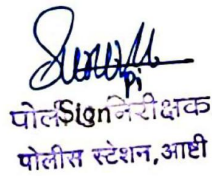 PI
पोलीस निरीक्षक
Sign
पोलीस स्टेशन, आष्टी